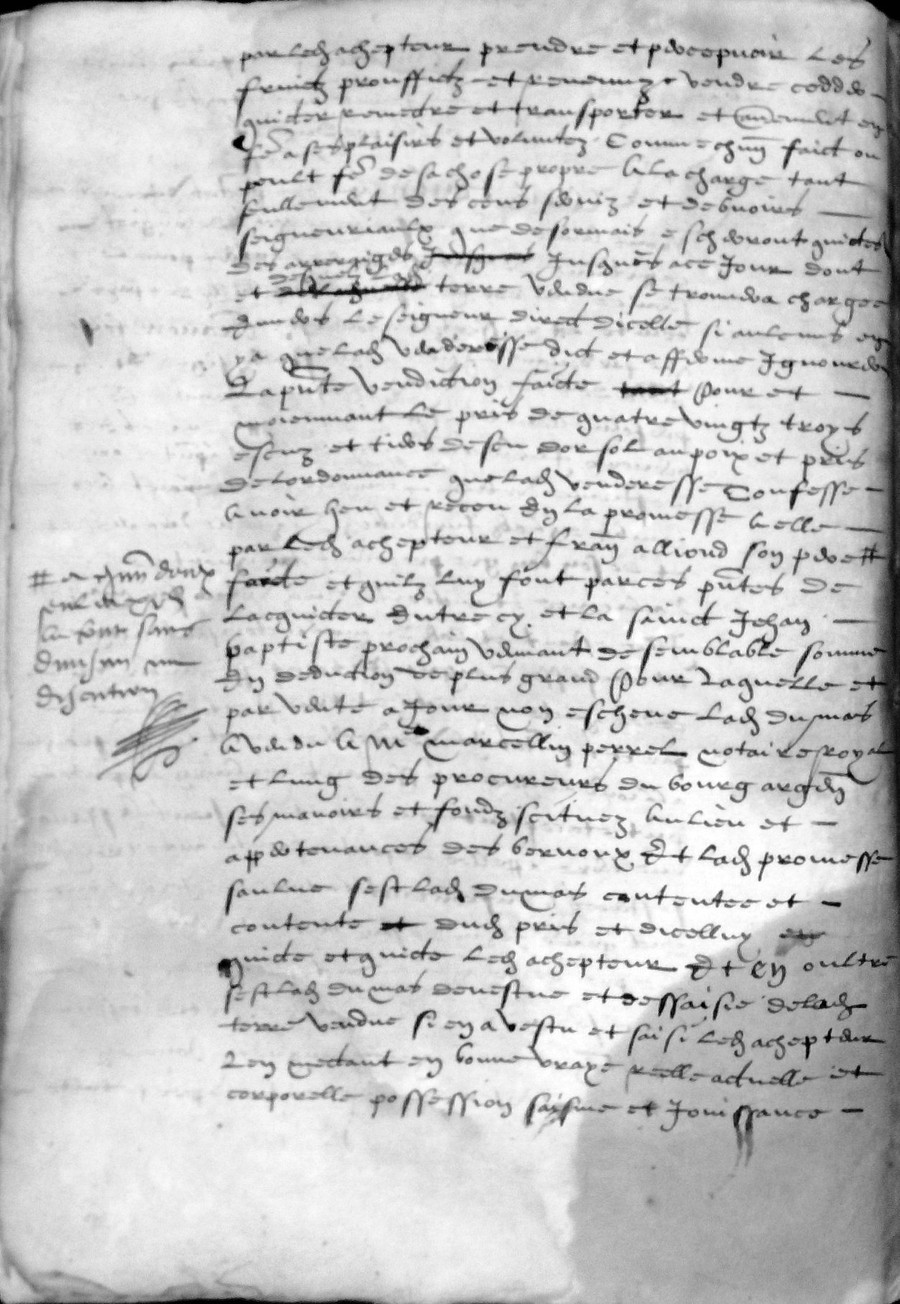 par led achepteur prendre et percepvoir les
fruictz prouffictz et revenuz vendre cedder
quicter remectre et transporter et aultrement en
fe a ses plaisirs et voluntez Comme chun faict ou
peult fe de sa chose propre A la charge tant
seullement des cens serviz et debvoirs
seigneuriaulx que desormais escherront quictes
des arreraiges Jusques a ce Jour dont
et terre vendue se trouvera chargee
envers le seigneur direct dicelle si aulcuns en
ya que lad venderesse dict et afferme Ignourer
La pnte vendiction faicte tant Pour et
moiennant le pris de quatre vingtz troys
escuz et tiers descu dor sol au poix et pris
de lordonnance que lad venderesse Confesse
avoir heu et receu En la promesse a elle
par led achepteur et Fran alliond son pere #
faicte et quilz luy font par ces pntes de
Lacquicter Entre cy et la sainct Jehan
baptiste prochain venant de semblable somme
En deduction de plus grand Pour Laquelle et
par verite a Jour non escheue Lad dumas
A vendu A Me marcellin perrel notaire royal
et lung des procureurs du bourg argen
ses manoirs et fondz scituez Au lieu et
appertenances des bernoux Et lad promesse
saulve sest lad dumas contentee et
contente dud pris et dicelluy
quicte et quicte led achepteur Et En oultre
sest lad dumas devestue et dessaisie de lad
terre vendue si en a vestu et saisi led achepteur
Len mectant en bonne vraye reelle actuelle et
corporelle possession saisine et Jouissance
# et
seul
A sans
division
discution